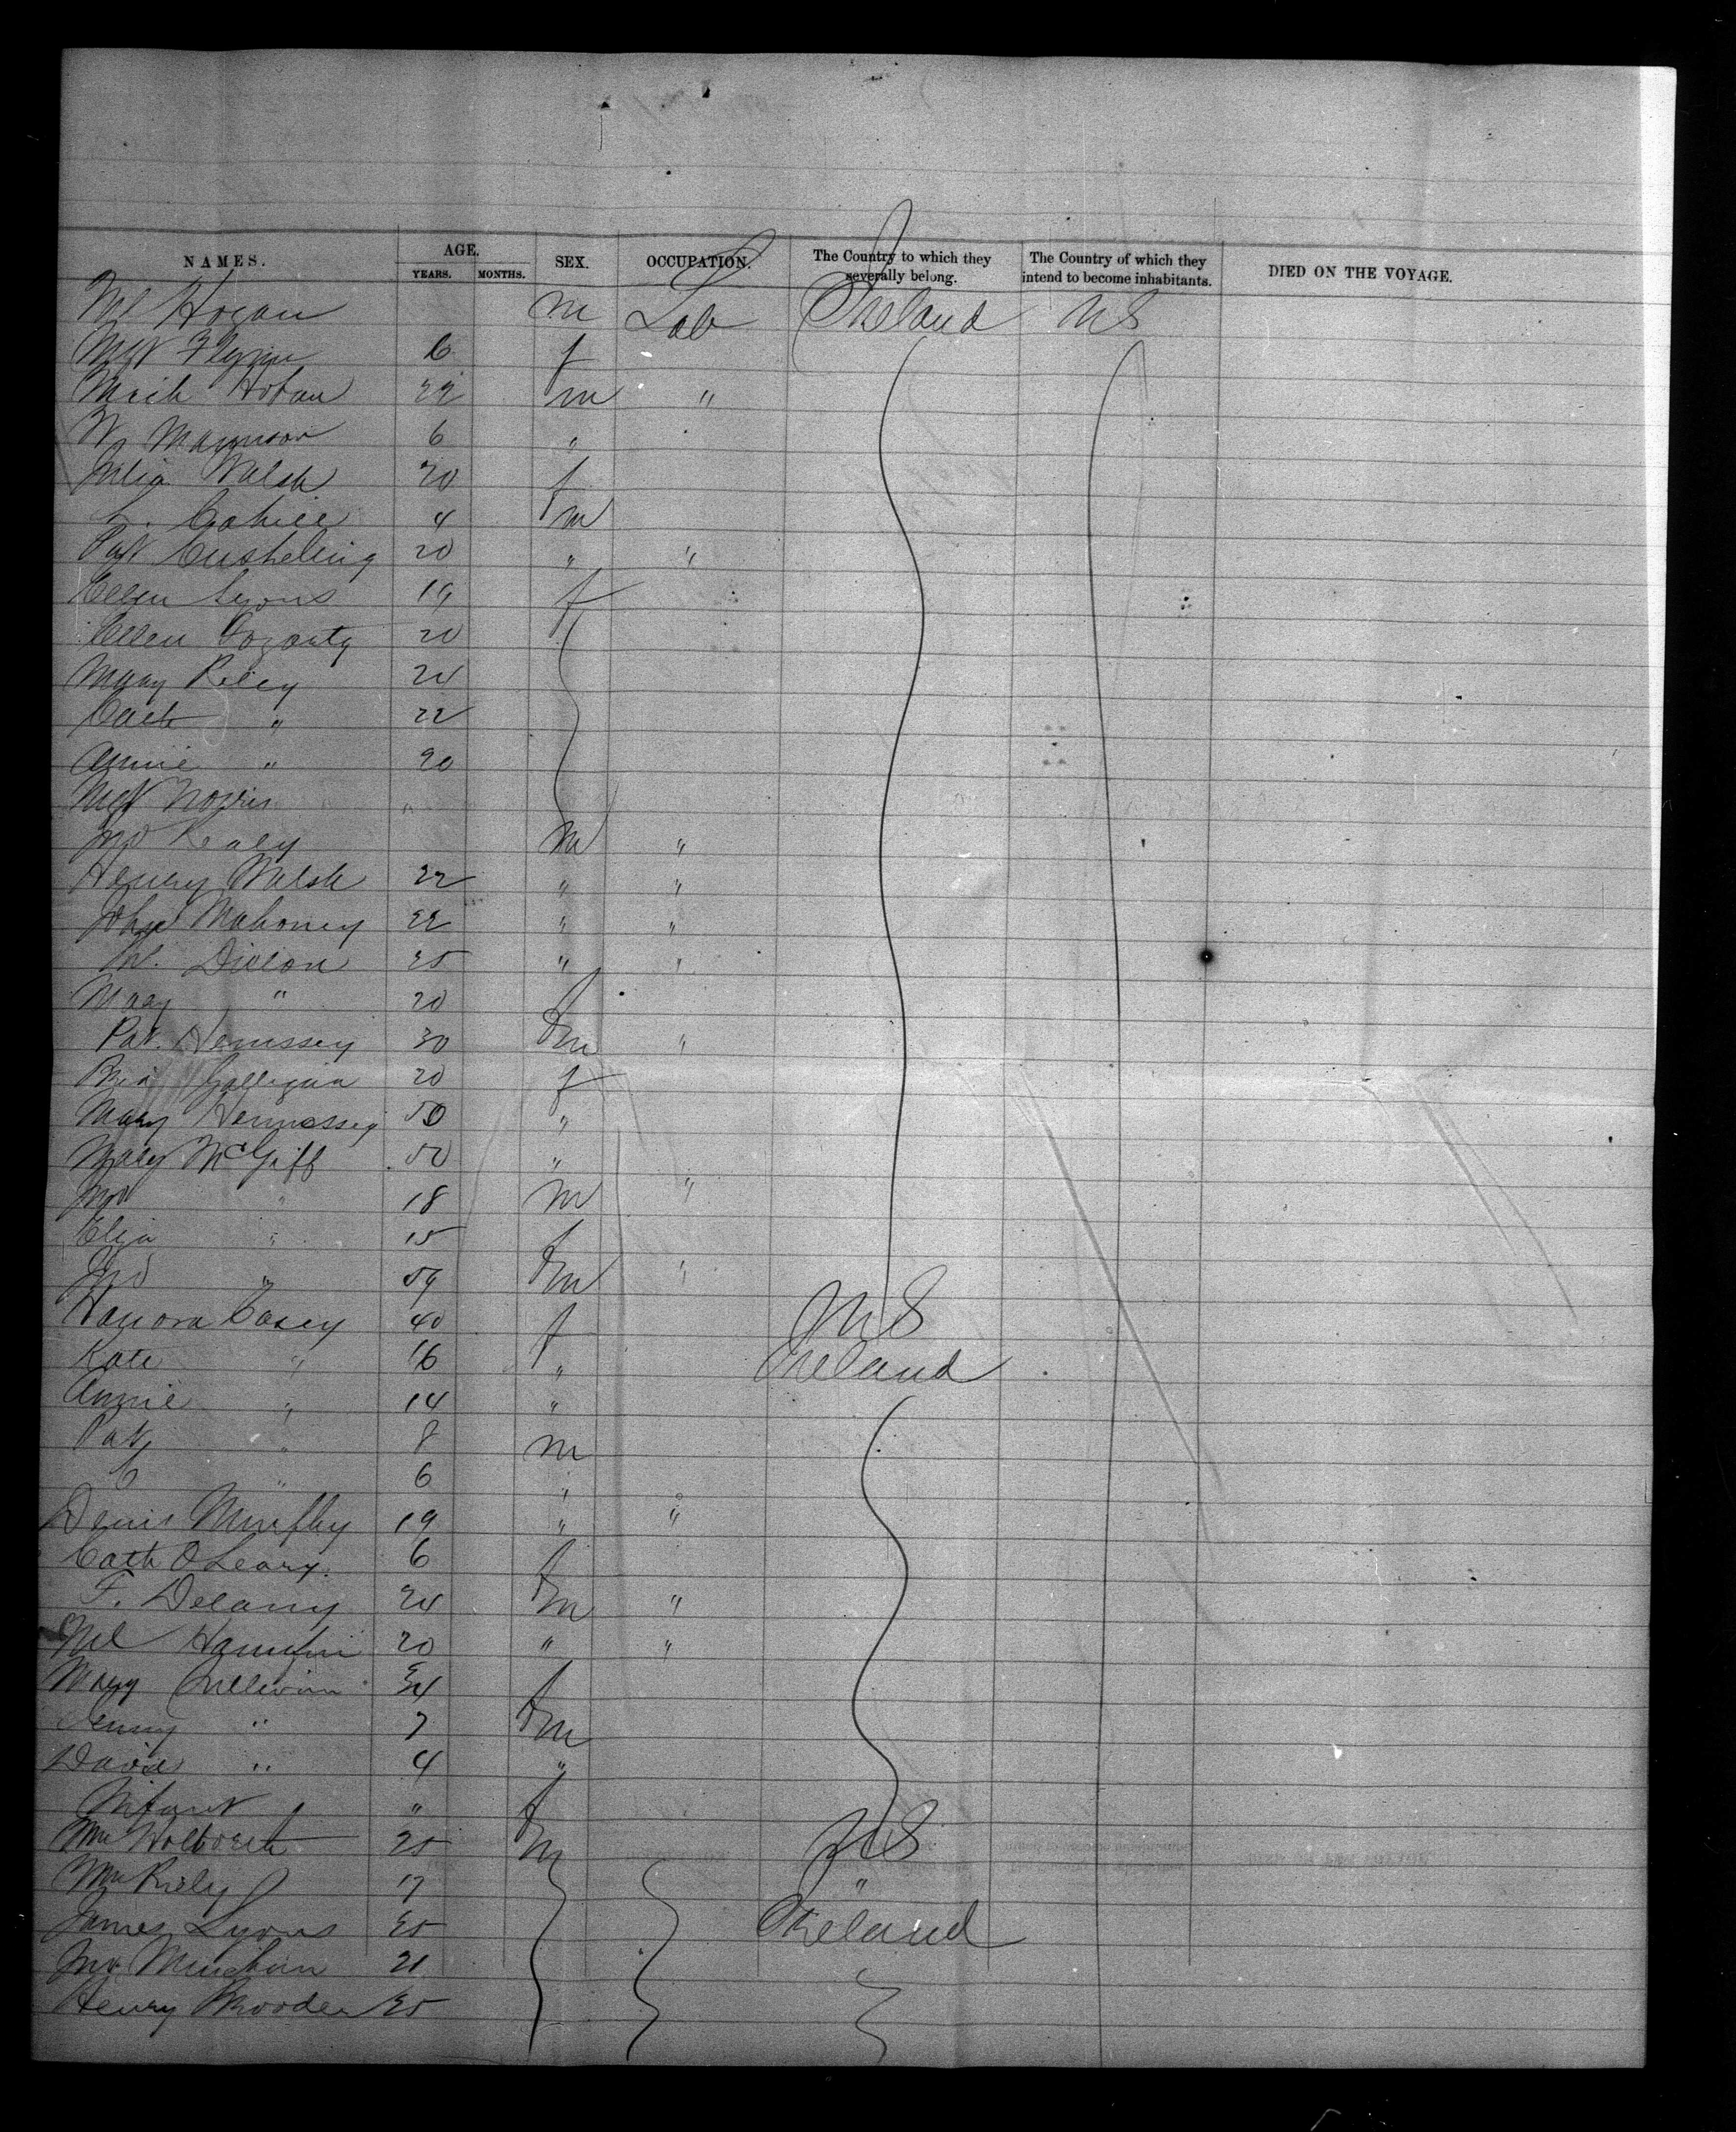 NAMES. AGE. YEARS. MONTHS. SEX. OCCUPATION. The Country to which they severally belong. The Country of which they intend to become inhabitants. DIED ON THE VOYAGE.
Ml Hogan m Lab Ireland US
Mgt Flynn 6 f
Mich Hoban 22 m "
6 "
Julia Walsh 20 f
Cahill 4 m
Pat 20 " "
Ellen Lyons 19 f
Ellen Fogarty 20
Mary Riley 24
Cath " 22
Annie " 20
Mgt Norris "
Jno Kealy m "
Henry Walsh 22 " "
John Mahoney 22 " "
W. Dillon 25 " "
Mary " 20 f
Pat. Henissey 30 m "
Galligan 20 f
Mary Hennessey 50 "
Mary McGiff 50 "
Jno " 18 m "
Eliza " 15 f
Jno " 59 m "
Hanora Casey 40 f US
Kate " 16 " Ireland
Annie " 14 "
Pat " 8 m
C " 6 "
Denis Murphy 19 " "
Cath O Leary. 6 f
F. Delany 24 m "
Ml 20 " "
Mary Sullivan 34 f
Jenny " 7 m
David " 4 "
Infant " f
Wm 25 m US
Wm Riely 17 "
James Lyons 25 Ireland
Jno 21
Henry 25